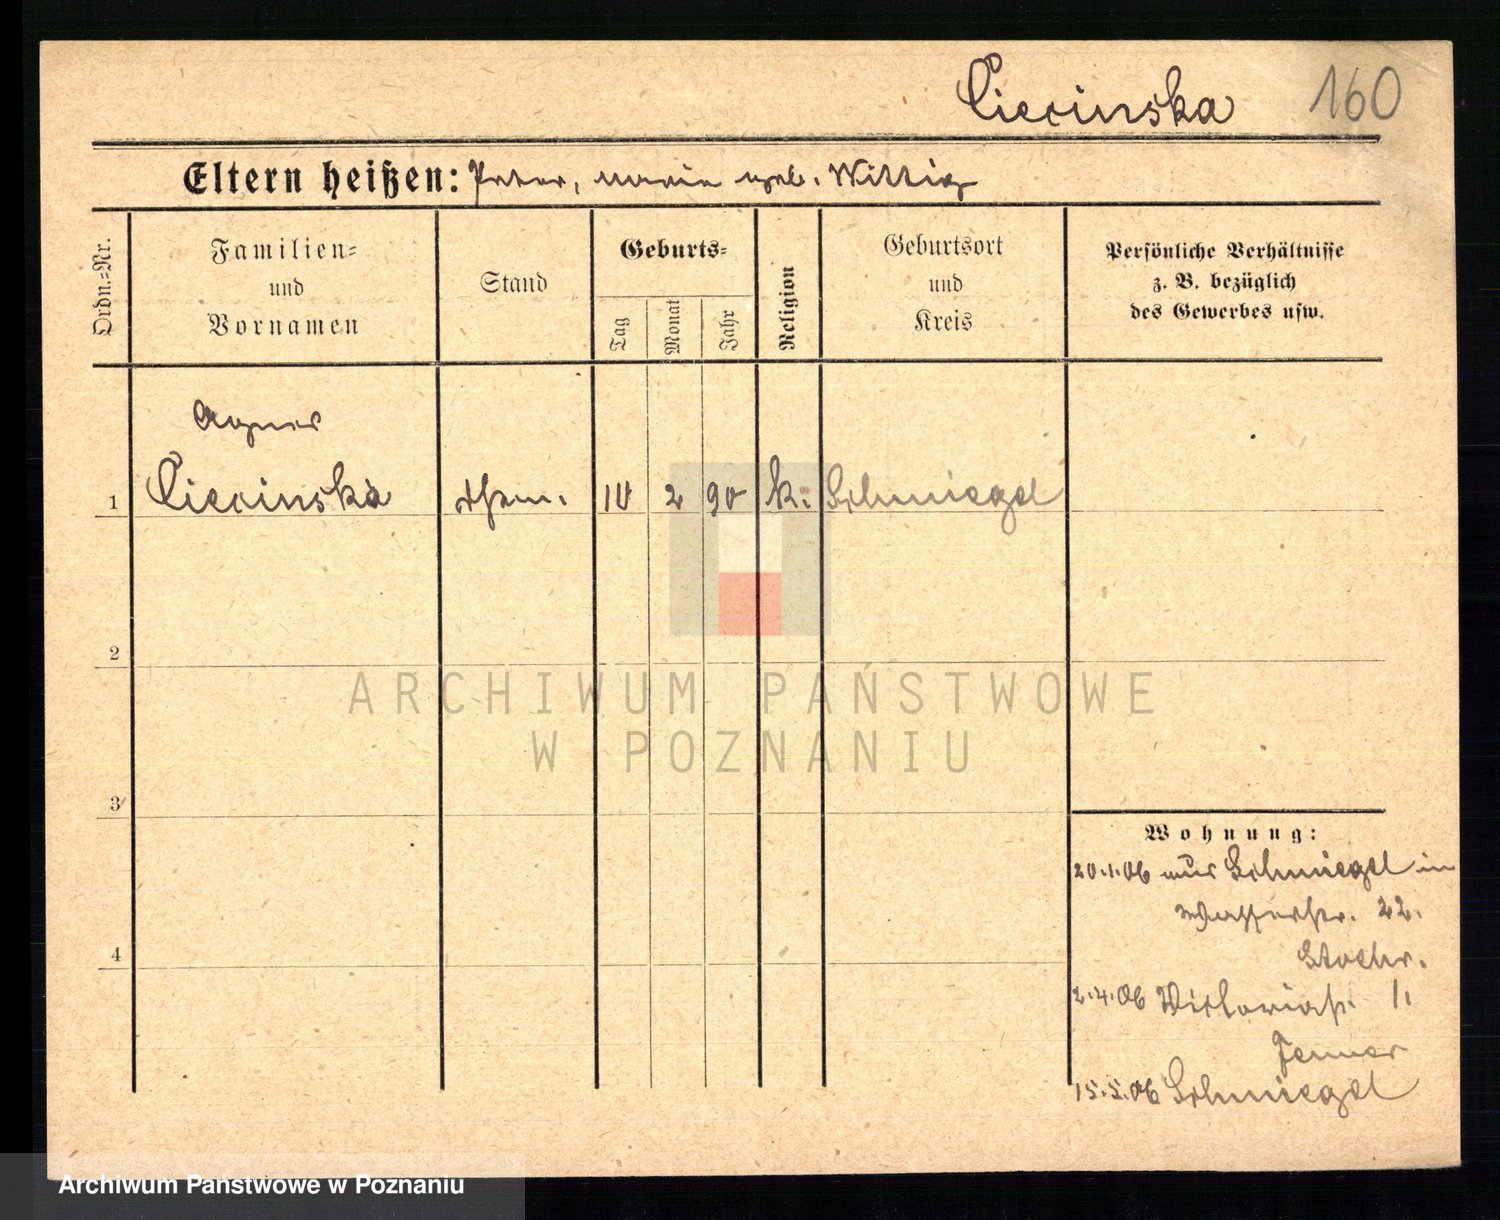 Ciecinska 160
Eltern heißen: Peter, Marie geb. Wittig
Ordn.=Nr.
Familien=
und
Vornamen
Stand
Geburts=
Tag
Monat
Jahr
Religion
Geburtsort
und
Kreis
Persönliche Verhältnisse
z. B. bezüglich
des Gewerbes usw.
Agnes
1 Ciecinska 10 2 90 k. Schmiegel
2
3
4
Wohnung:
20.1.06 aus Schmiegel in
Wasserstr. 22.
Stoehr.
2.4.06 Victoriastr. 1.
15.5.06 Schmiegel
ARCHIWUM PAŃSTWOWE
W POZNANIU
Archiwum Państwowe w Poznaniu